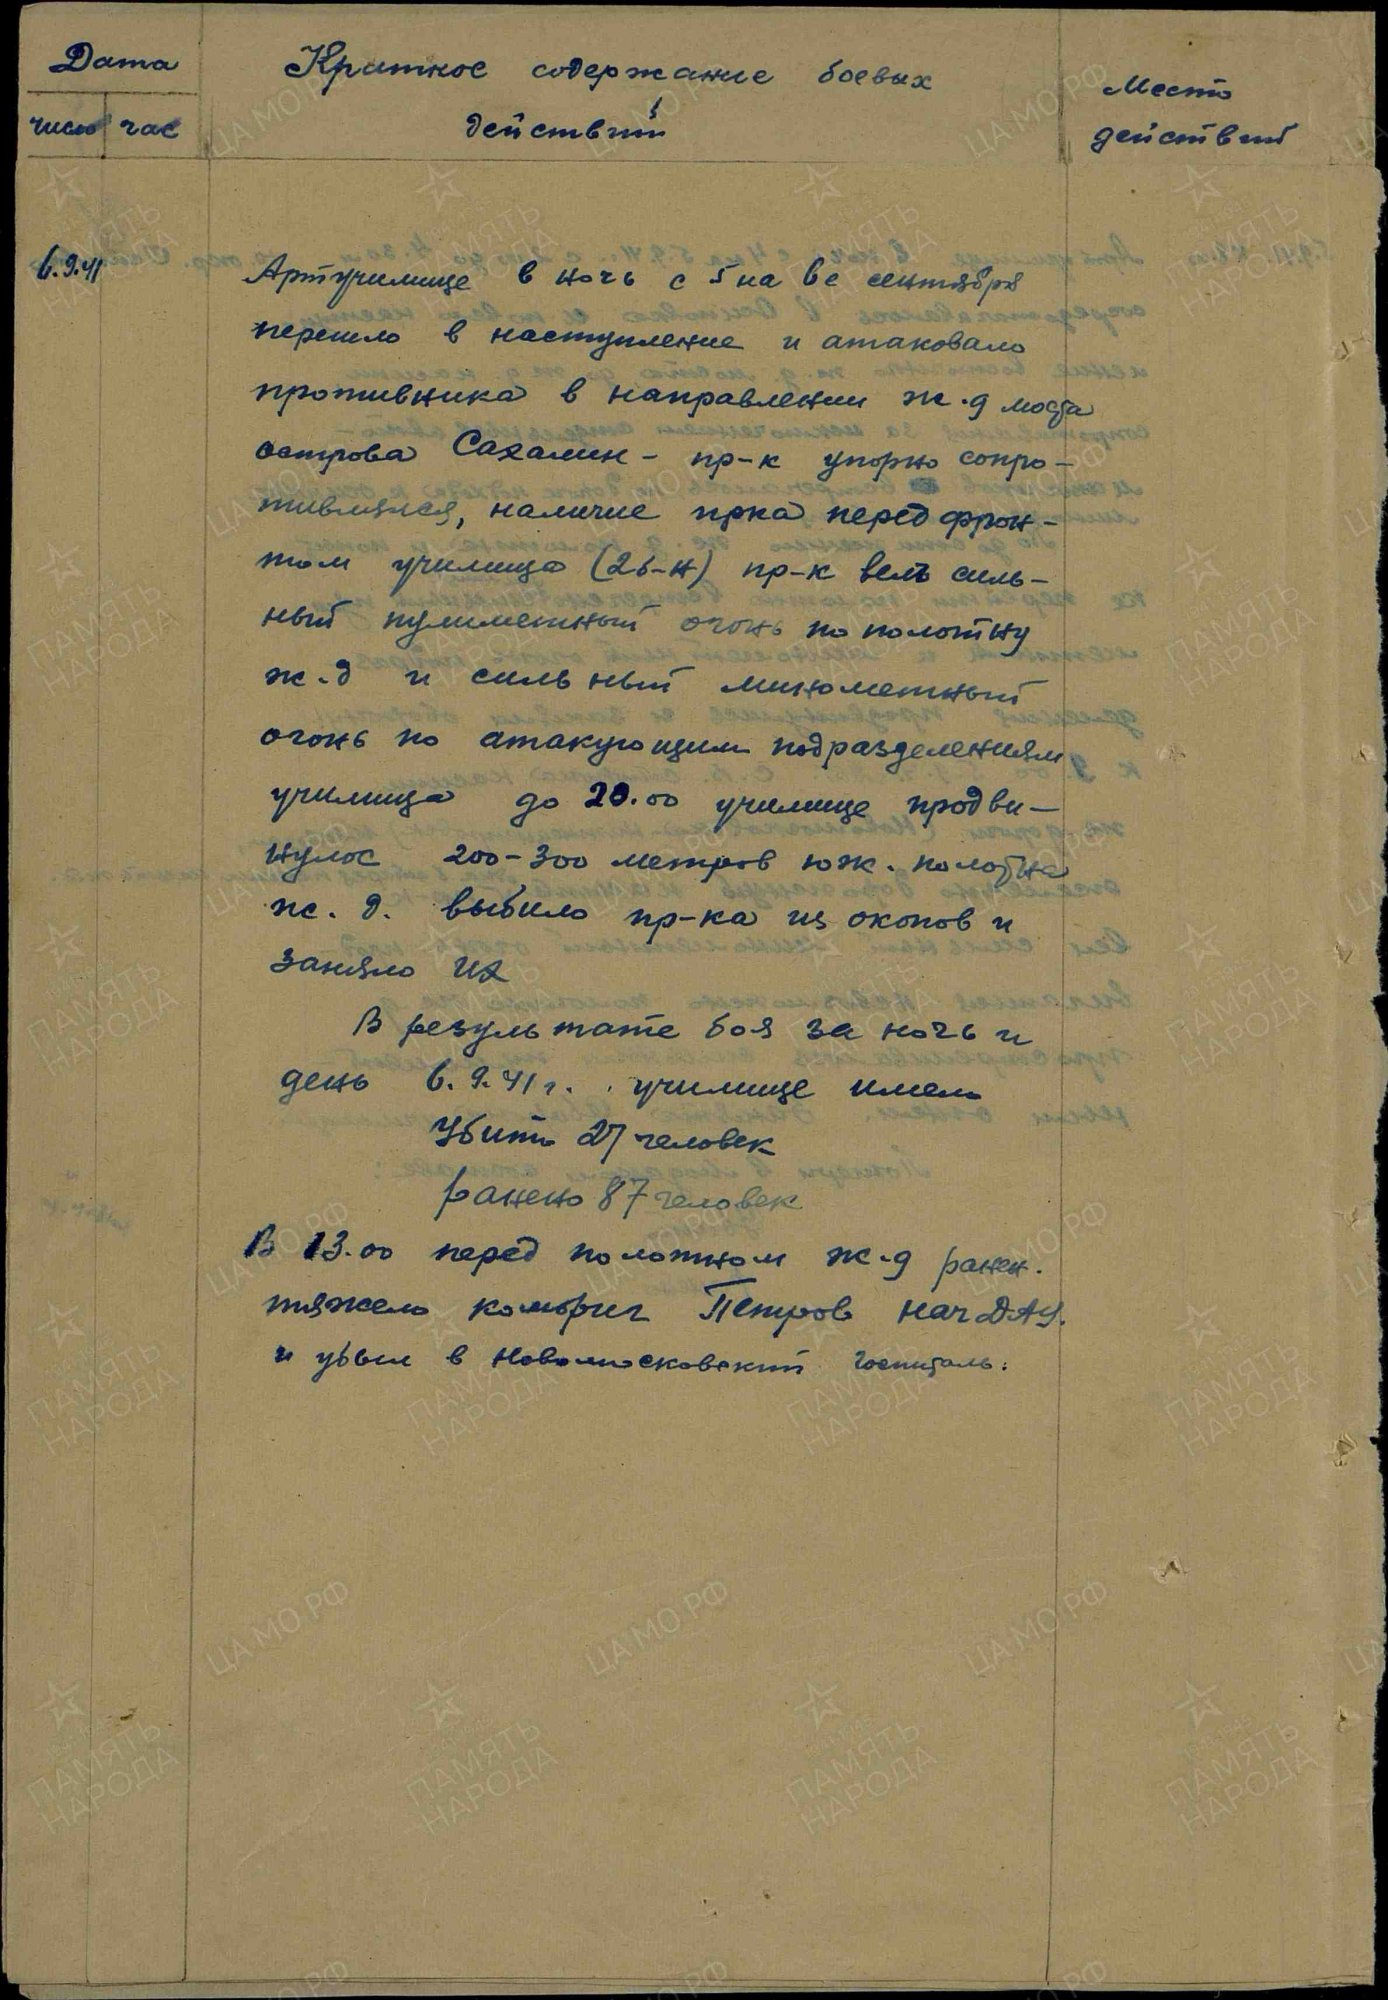 Дата
Краткое содержание боевых
Место
число час
действий
действий
6.9.41
Артучилище в ночь с 5 на 6е сентября
перешло в наступление и атаковало
противника в направлении ж.д моста
острова Сахалин - пр-к упорно сопро-
тивлялся, наличие прка перед фрон-
том училища (2б-н) пр-к вель силь-
ный пулеметный огонь по полотну
ж.д и сильный минометный
огонь по атакующим подразделениям
училища до 20.00 училище продви-
нулос 200-300 метров юж. полотна
ж. д. выбило пр-ка из окопов и
заняло их
В результате боя за ночь и
день 6.9.41г. училище имело
Убито 27 человек
ранено 87 человек
В 13.00 перед полотном ж.д ранен.
тяжело комбриг Петров нач ДАУ.
и убыл в Новомосковский госпиталь.
ЦА МО РФ
ПАМЯТЬ
НАРОДА